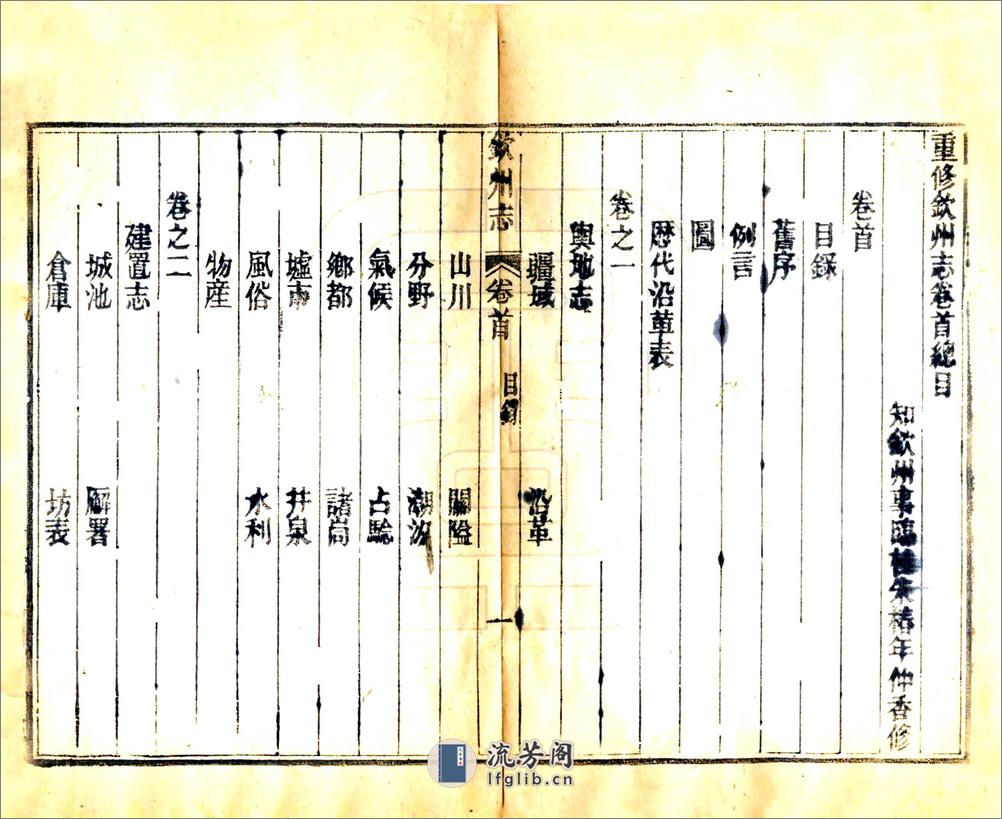 重修欽州志卷首總目
知欽州事臨桂朱椿年仲香修
卷首
目録
舊序
例言
圖
歷代沿革表
卷之一
輿地志
疆域 沿革
欽州志 卷首 目録 一
山川 關隘
分野 潮汐
氣候 占驗
鄉都 諸峝
墟市 井泉
風俗 水利
物産
卷之二
建置志
城池 廨署
倉庫 坊表
流芳阁
lfglib.cn